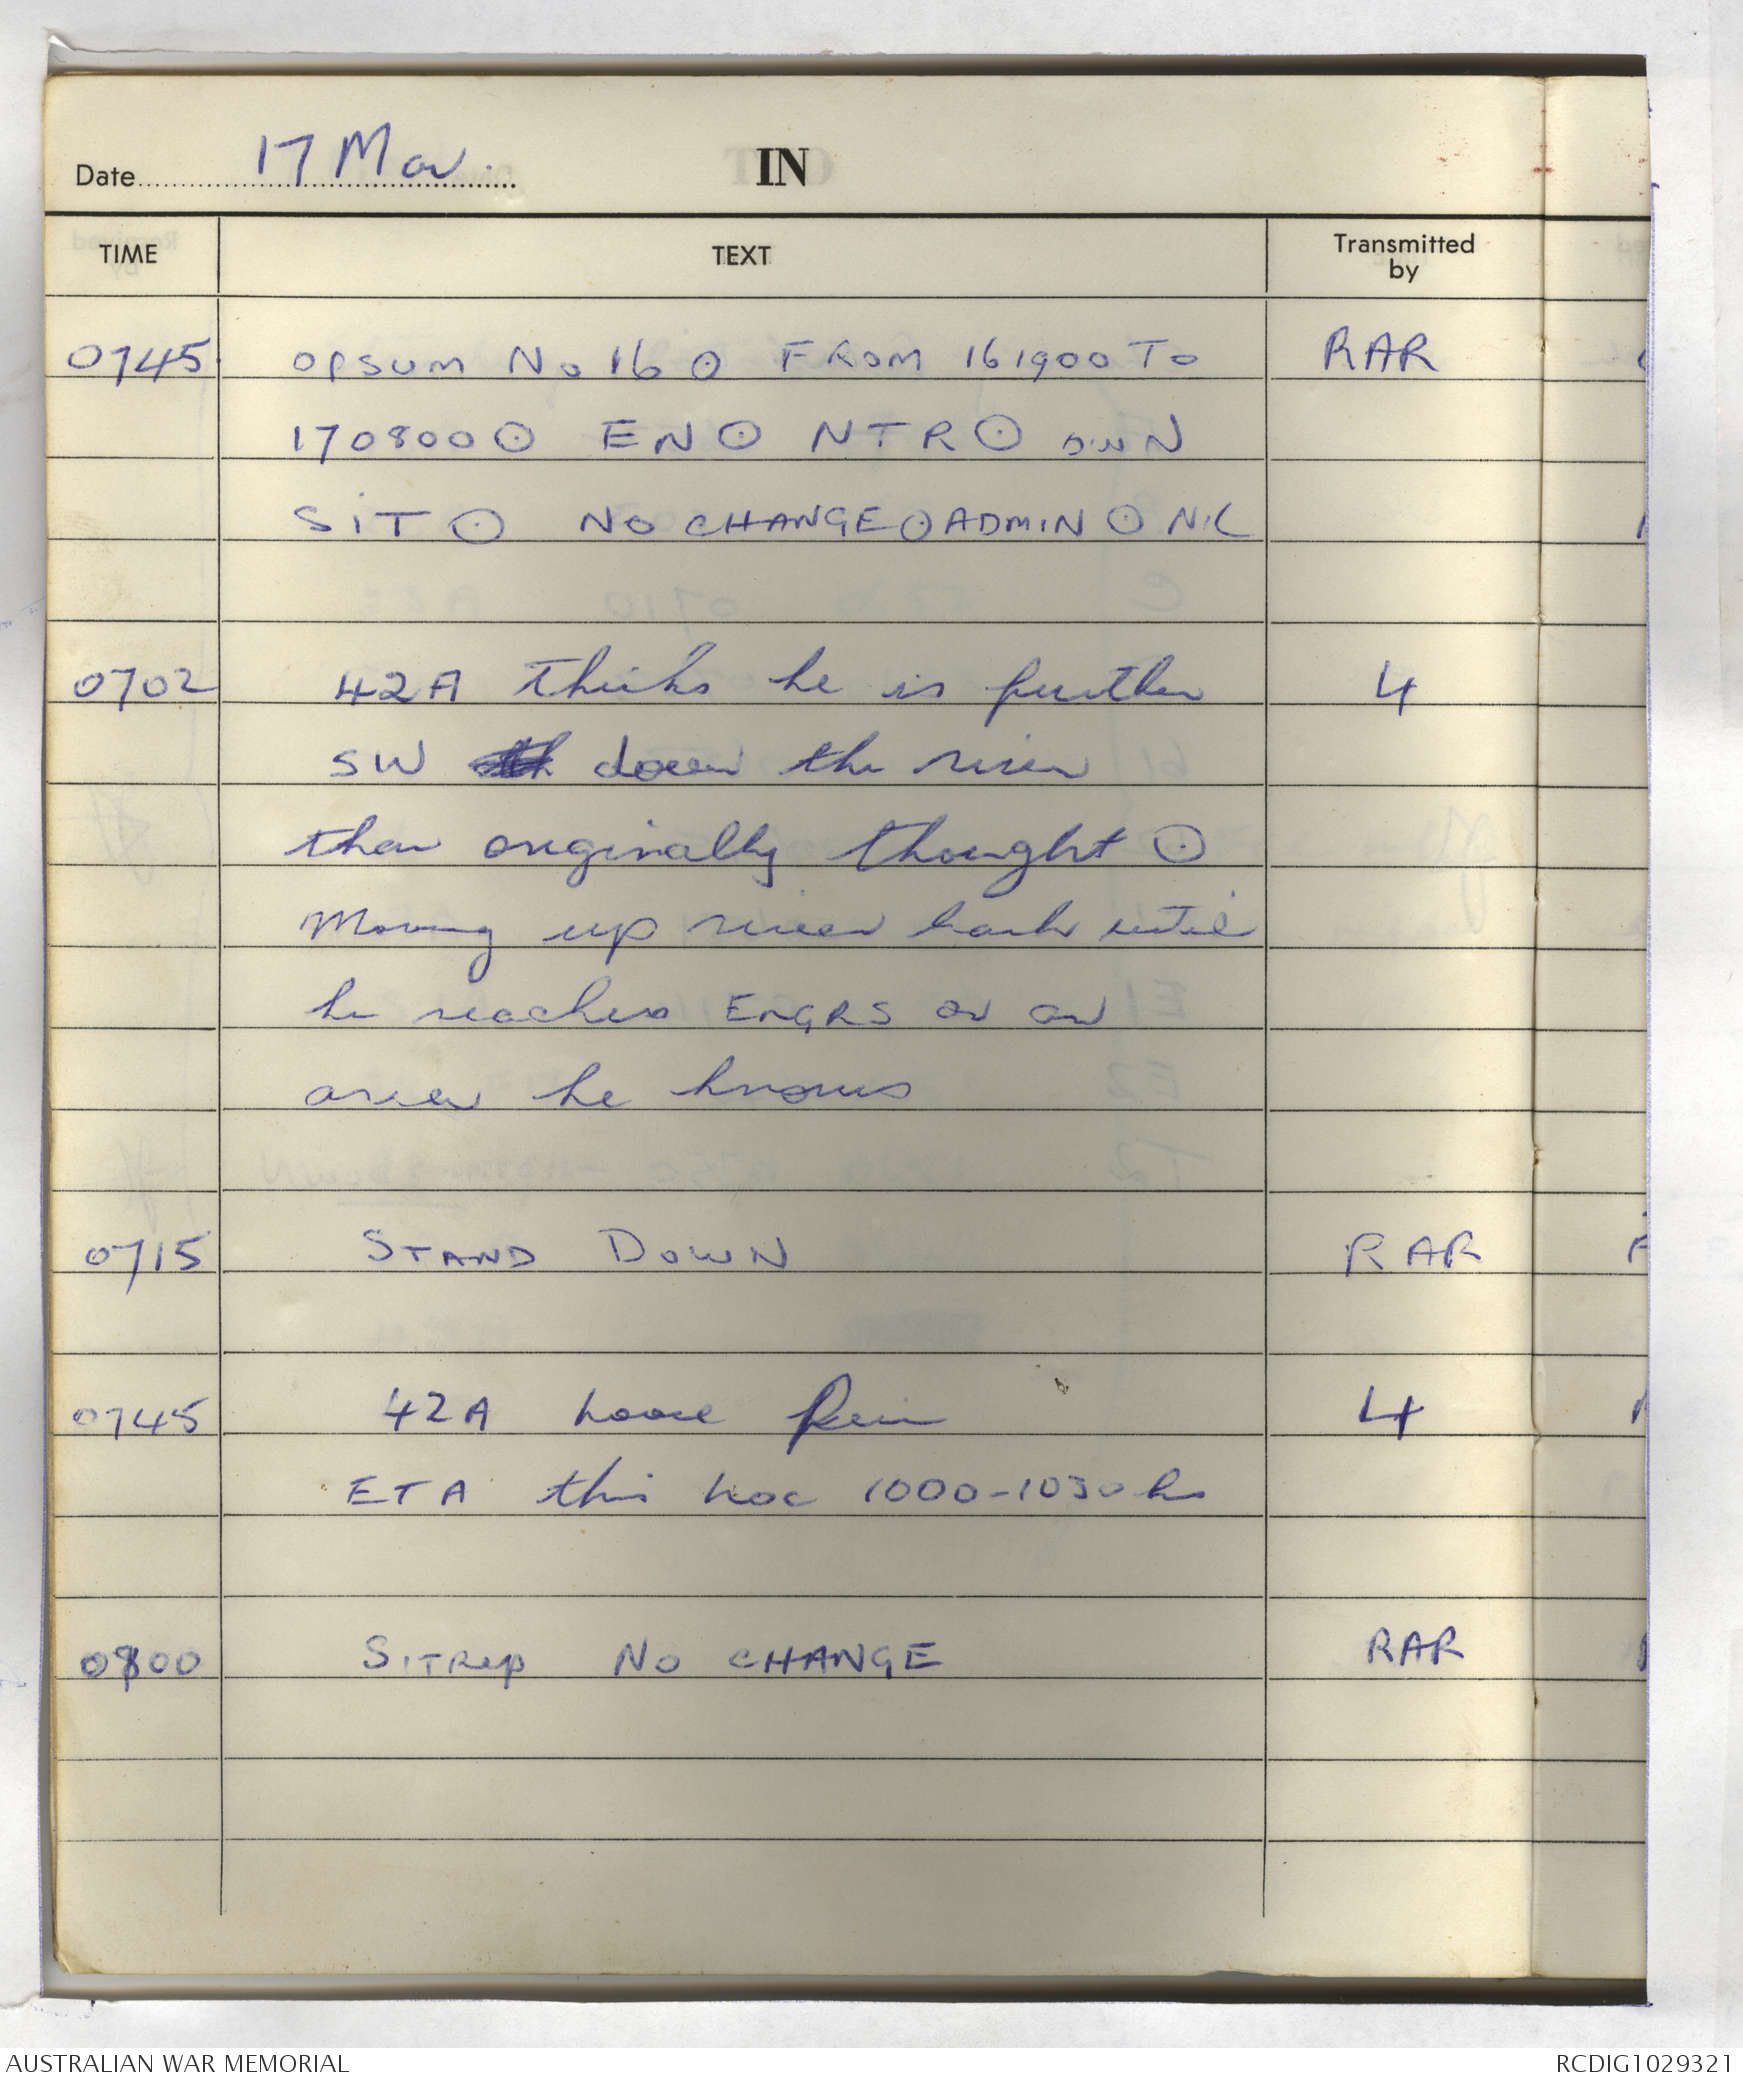 Date 17 Mar IN
TIME TEXT Transmitted by
0745 OPSUM No 16 ⊙ FROM 161900 To RAR
170800 ⊙ EN ⊙ NTR ⊙ OWN
SIT ⊙ NO CHANGE ⊙ ADMIN ⊙ NIL
0702 42A thinks he is further 4
SW down the river
than originally thought ⊙
Moving up river bank until
he reaches ENGRS or an
area he knows
0715 STAND DOWN RAR
0745 42A 4
ETA this loc 1000-1030 hrs
0800 SITREP NO CHANGE RAR
AUSTRALIAN WAR MEMORIAL RCDIG1029321